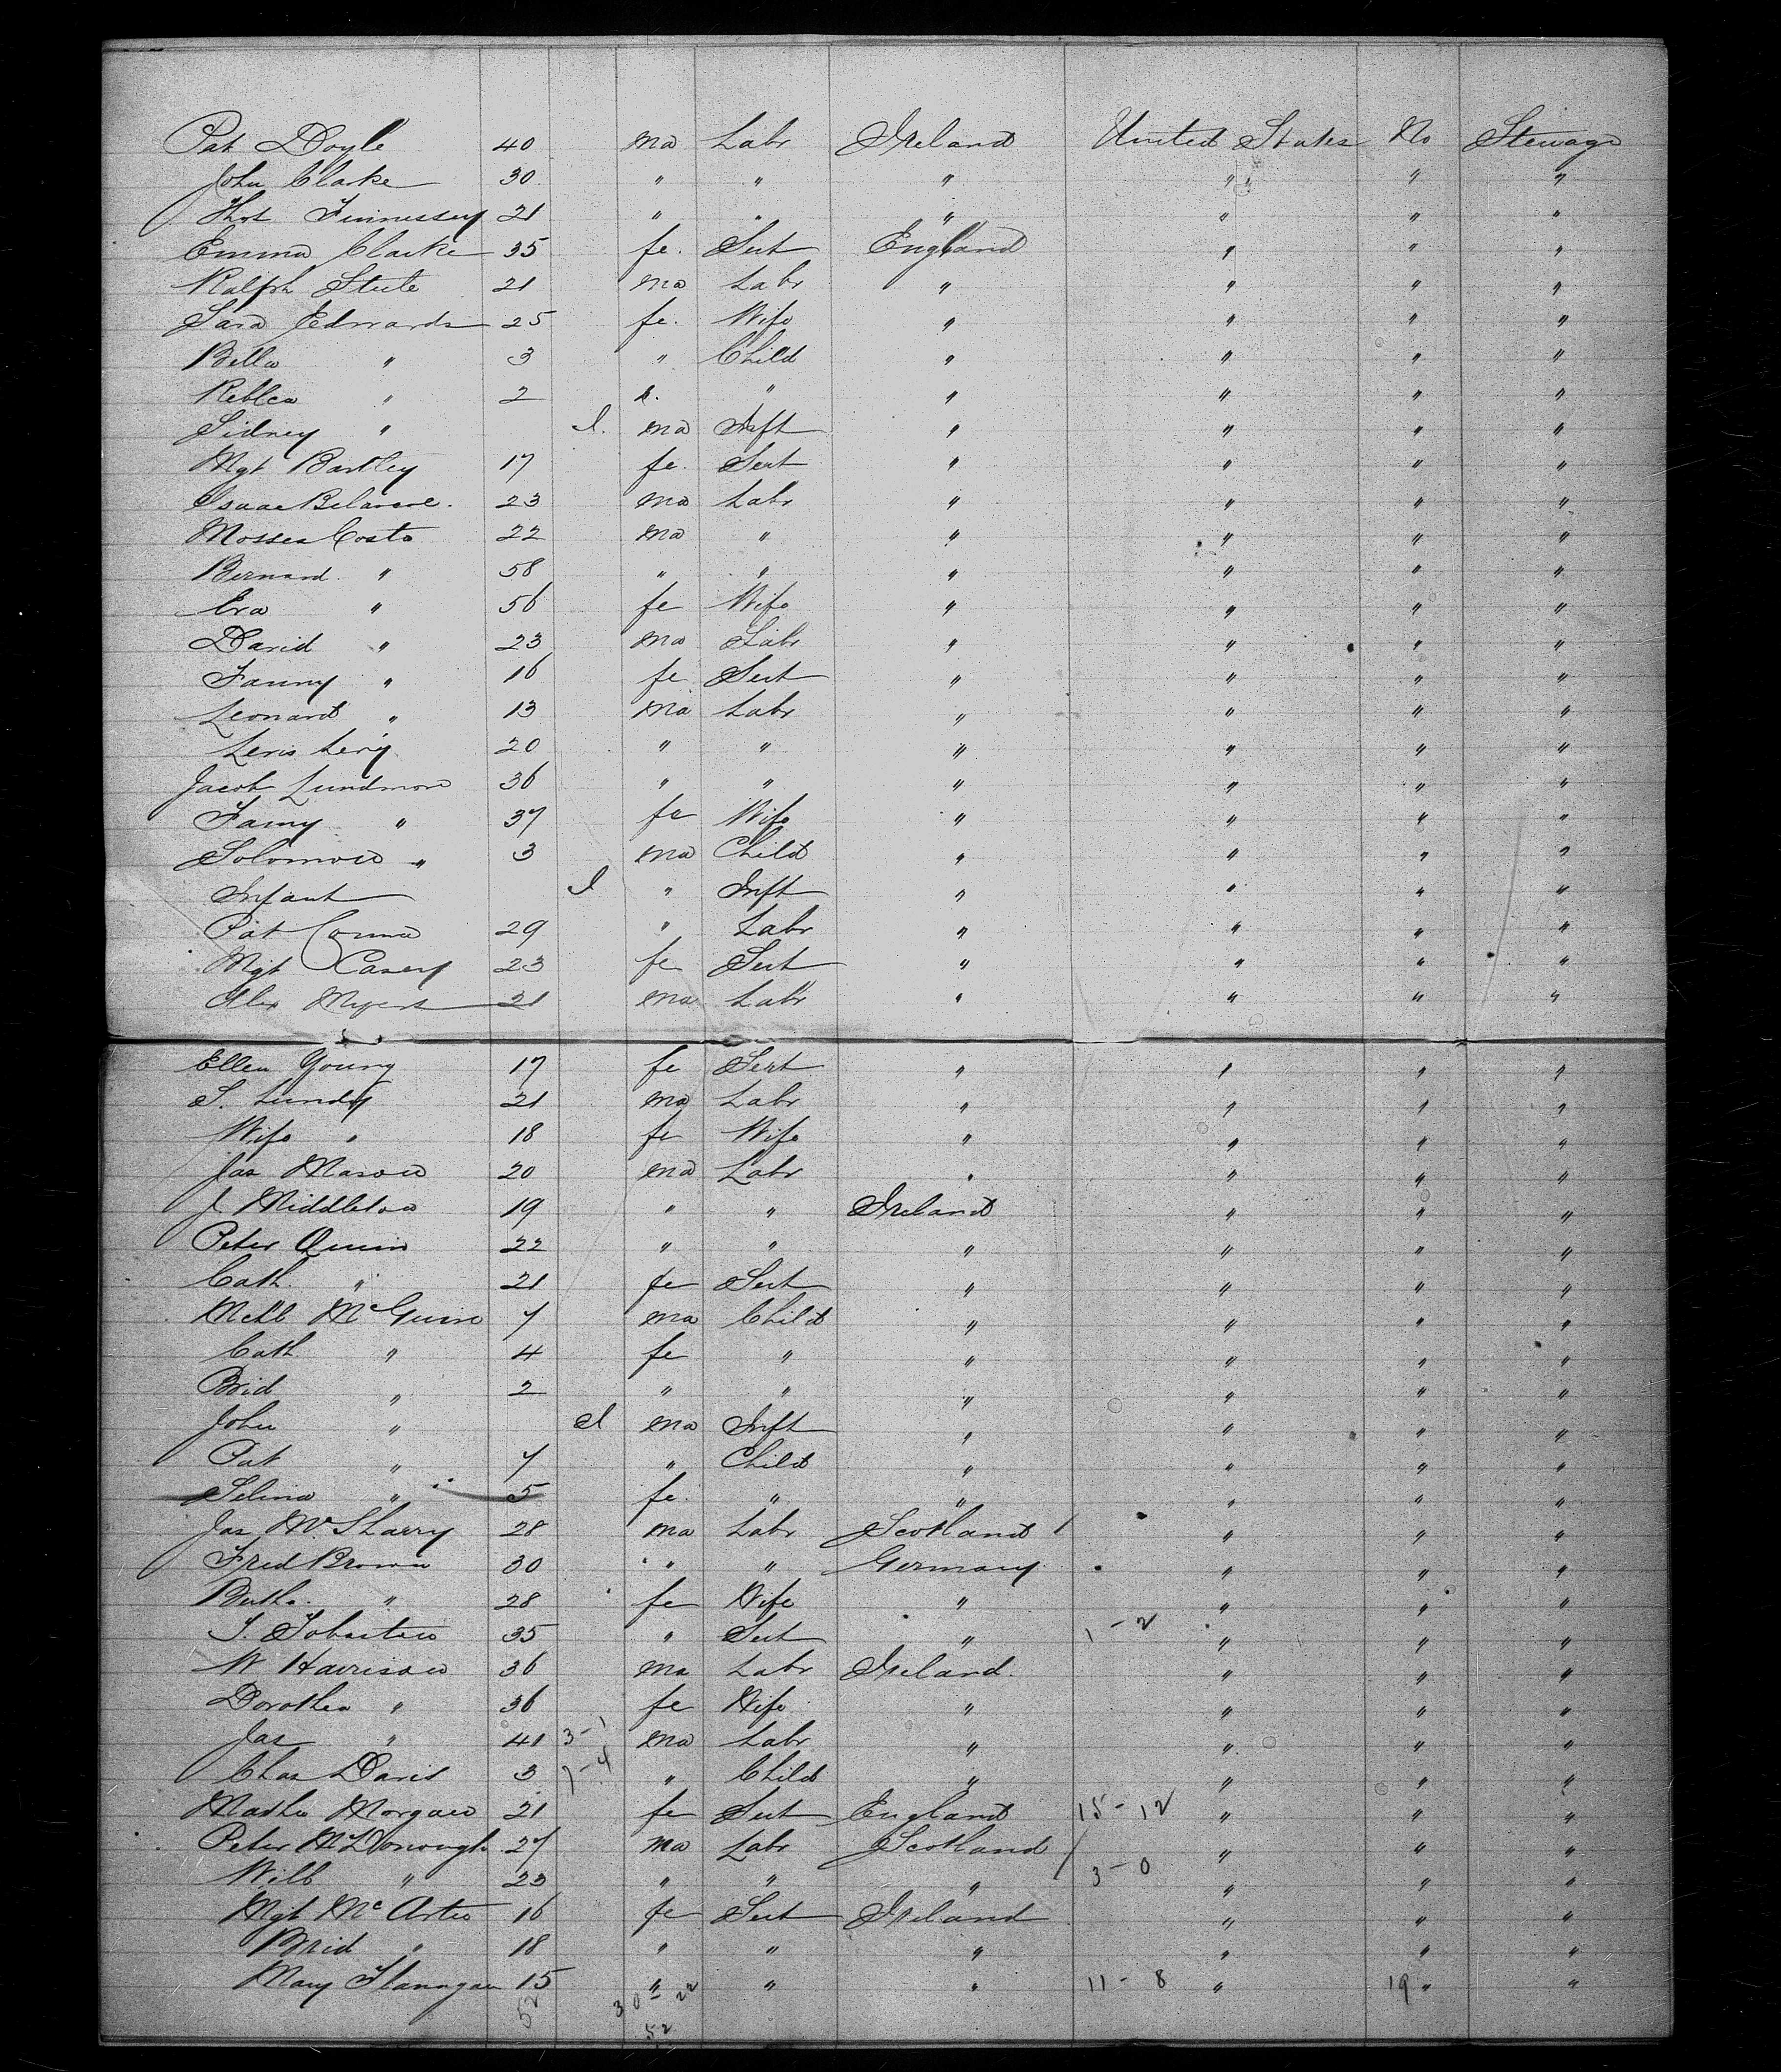 Pat Doyle 40 ma Labr Ireland United States No Steerage
John Clarke 30 " " " " " "
Thos Finnessey 21 " " " " " "
Emma Clarke 35 fe. Sert England " " "
Ralph Steele 21 ma Labr " " " "
Sara Edwards 25 fe. Wife " " " "
Bella " 3 " Child " " " "
" 2 " " " " "
Sidney " I. ma Inft " " " "
Mgt Bartley 17 fe. Sert " " " "
Isaac 23 ma Labr " " " "
Mosses Costa 22 ma " " " " "
Bernard. " 58 " " " " " "
Eva " 56 fe Wife " " " "
David " 23 ma Labr " " " "
Fanny " 16 fe Sert " " " "
Leonard " 13 ma Labr " " " "
Levis Levy 20 " " " " " "
Jacob 36 " " " " " "
Fanny " 37 fe Wife " " " "
Solomon " 3 ma Child " " " "
Infant I " Inft " " " "
Pat 29 " Labr " " " "
Mgt Casey 23 fe Sert " " " "
Alex Myers 21 ma Labr " " " "
Ellen Young 17 fe Sert " " " "
S. Lundy 21 ma Labr " " " "
Wife " 18 fe Wife " " " "
Jas Mason 20 ma Labr " " " "
J Middleton 19 " " Ireland " " "
Peter Quinn 22 " " " " " "
Cath. " 21 fe Sert " " " "
McGuire 7 ma Child " " " "
Cath " 4 fe " " " " "
Brid " 2 " " " " " "
John " I ma Inft " " " "
Pat " 7 " Child " " " "
Selina " 5 fe. " " " " "
Jas McSharry 28 ma Labr Scotland / " " "
Fred Brown 30 " " Germany " " "
" 28 fe Wife " " " "
35 " Sert " 1 - 2 " " "
W Harrison 36 ma Labr Ireland. " " "
Dorothea " 36 fe Wife " " " "
Jas " 41 3-1 ma Labr " " " "
Chas David 3 7-4 " Child " " " "
Morgan 21 fe Sert England 15 - 12 " " "
Peter McDonough 27 ma Labr Scotland / " " "
Will " 23 " " " 3 - 0 " " "
Mgt Mc 16 fe Sert Ireland " " "
Brid " 18 " " " " " "
Mary Flannigan 15 " " " 11 - 8 " 19 " "
52 30 - 22
52